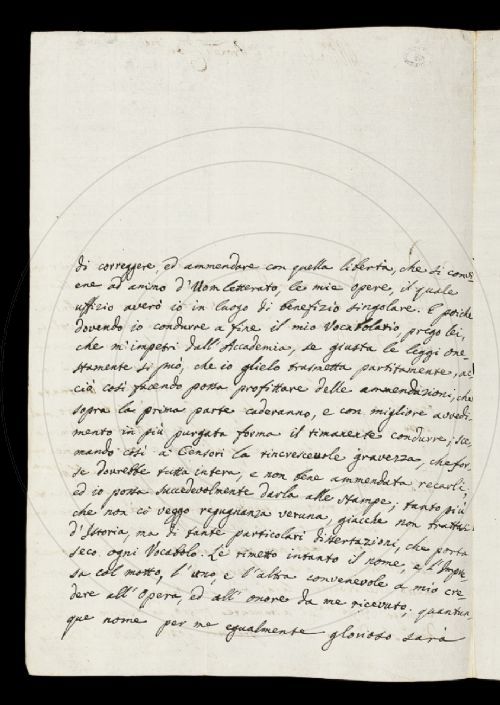 di correggere, ed ammendare con quella libertà, che si convi=
ene ad animo d'Uom letterato, le mie opere, il quale
uffizio averò io in luogo di benefizio singolare. E poiche
dovendo io condurre a fine il mio Vocabolario, prego lei,
che m'impetri dall'Accademia, se giusta le leggi one=
stamente si può, che io glielo trasmetta partitamente, ac=
ciò così facendo possa profittare delle ammendazioni, che
sopra la prima parte caderanno, e con migliore avvedi=
mento in più purgata forma il rimanente condurre; sce
mando così a Censori la rincrescevole gravezza, che for=
se dovrebbe tutta intera, e non bene ammendata recarli;
ed io possa succedevolmente darla alle stampe; tanto più
che non ci veggo repugnanza veruna, giacchè non trattasi
d'Istoria, ma di tante particolari dissertazioni, che porta
seco ogni Vocabolo. Le rimetto intanto il nome, e l'Impre
sa col motto, l'uno, e l'altra convenevole a mio cre=
dere all'Opera, ed all'onore da me ricevuto; quantun=
que nome per me egualmente glorioso sarà